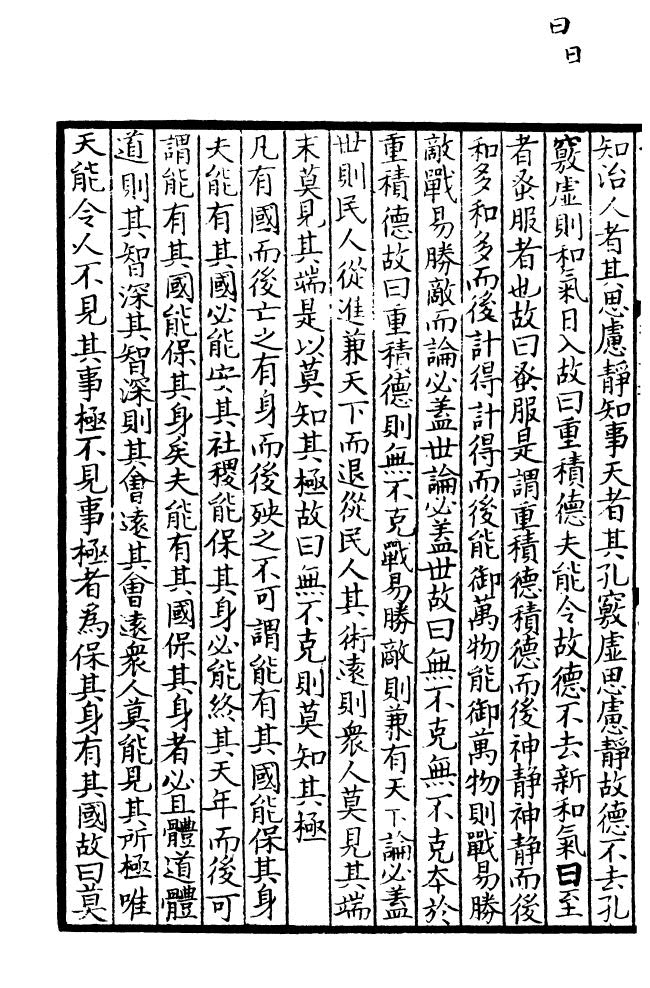 曰
日
知治人者其思慮靜知事天者其孔竅虛思慮靜故德不去孔
竅虛則和氣日入故曰重積德夫能令故德不去新和氣日至
者蚤服者也故曰蚤服是謂重積德積德而後神靜神靜而後
和多和多而後計得計得而後能御萬物能御萬物則戰易勝
敵戰易勝敵而論必蓋世論必蓋世故曰無不克無不克本於
重積德故曰重積德則無不克戰易勝敵則兼有天下論必蓋
世則民人從進兼天下而退從民人其術遠則衆人莫見其端
末莫見其端是以莫知其極故曰無不克則莫知其極
凡有國而後亡之有身而後殃之不可謂能有其國能保其身
夫能有其國必能安其社稷能保其身必能終其天年而後可
謂能有其國能保其身矣夫能有其國保其身者必且體道體
道則其智深其智深則其會遠其會遠衆人莫能見其所極唯
天能令人不見其事極不見事極者為保其身有其國故曰莫